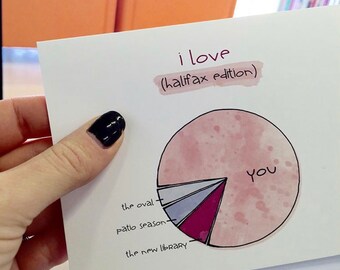 i love
(halifax edition)
YOU
the oval
patio season
the new library